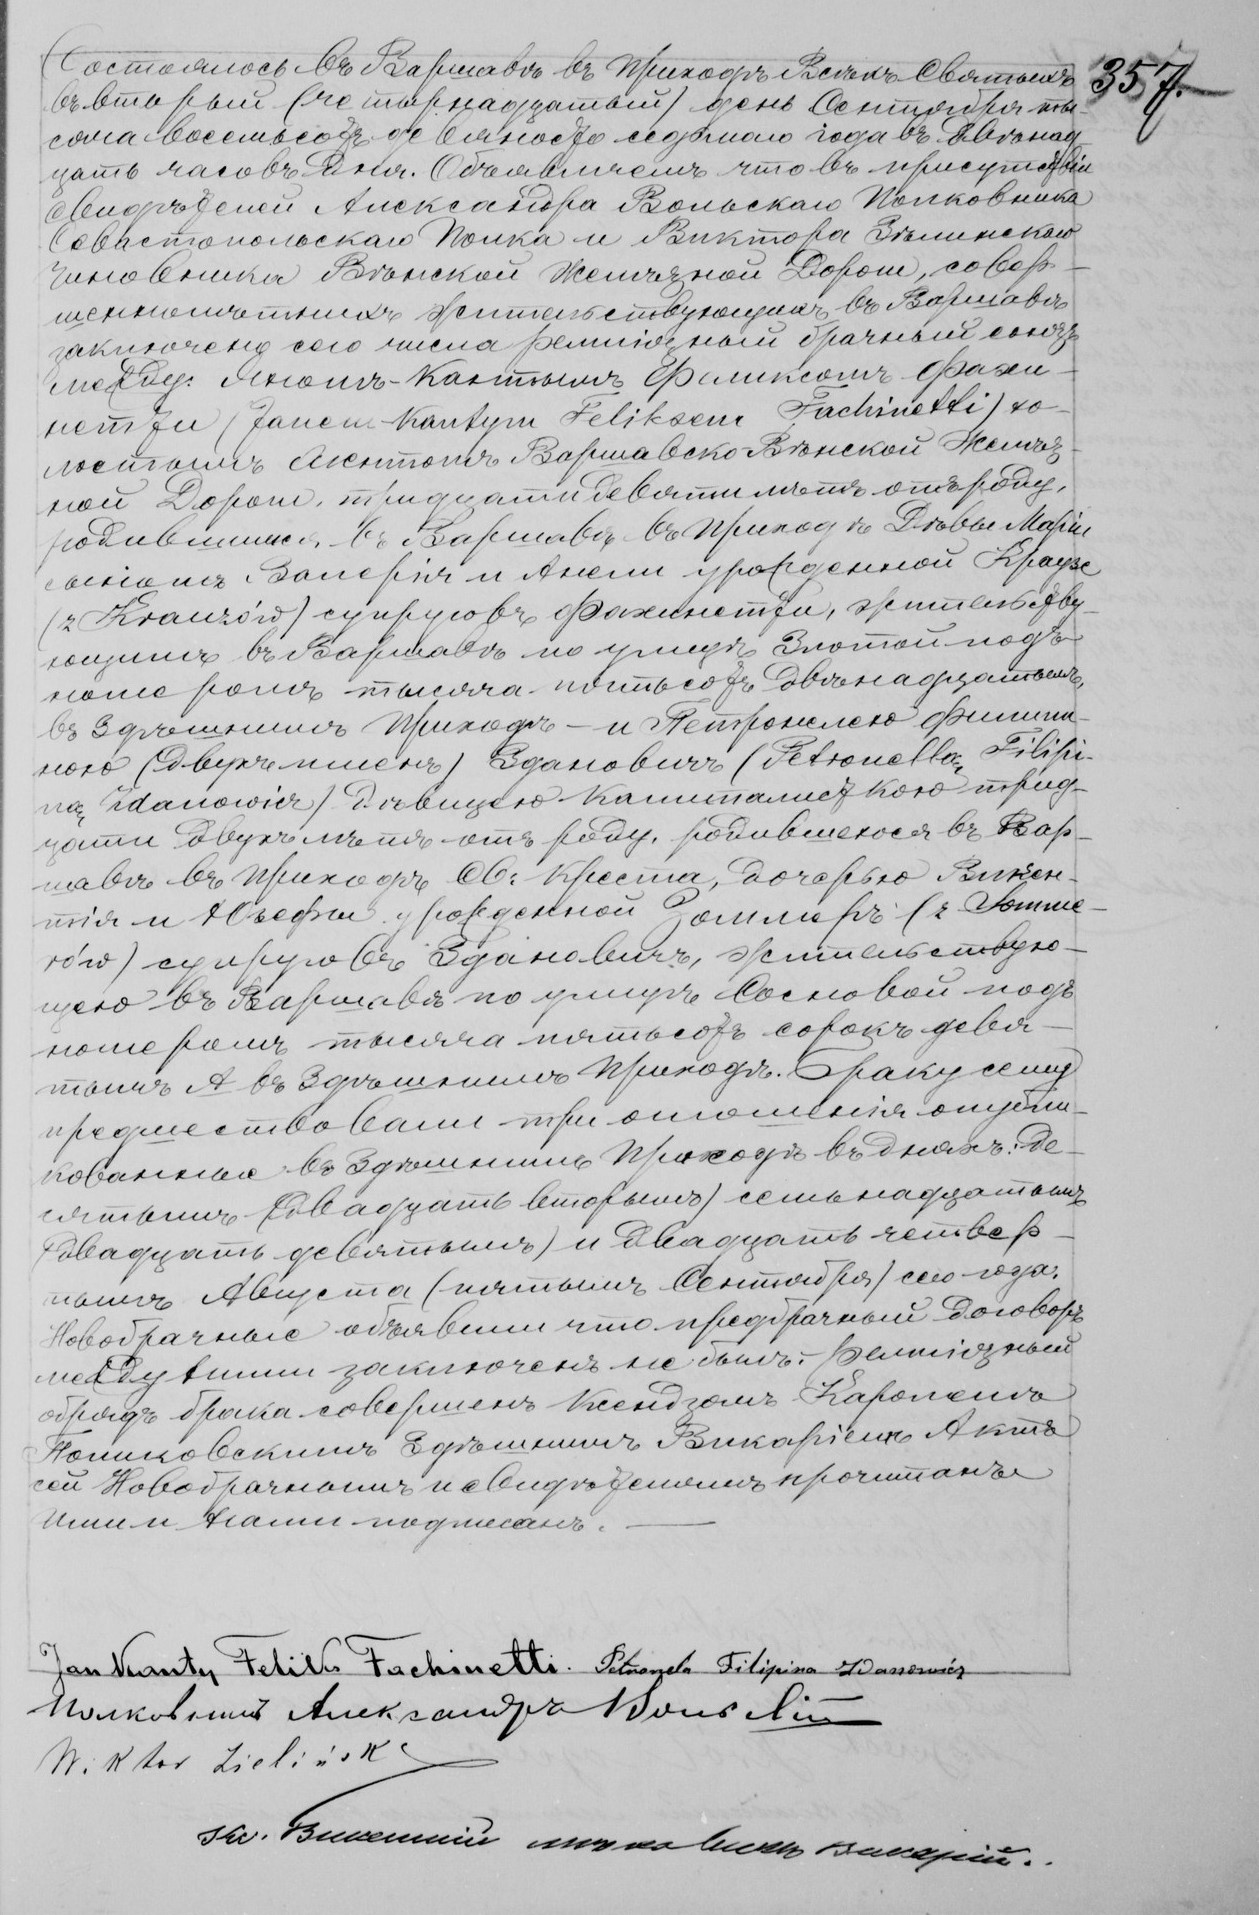 Состоялось въ Варшавѣ въ Приходѣ Всѣхъ Святыхъ
357.
въ вторый (четырнадцатый) день Сентября ты-
сяча восемьсотъ девяносто седьмаго года въ двѣнад
цать часовъ дня. Объявляемъ что въ присутствіи
свидѣтелей Александра Вольскаго Полковника
Севастопольскаго Полка и Виктора Зѣлинскаго
чиновника Вѣнской Желѣзной Дороги, совер-
шеннолѣтнихъ жительствующихъ въ Варшавѣ
заключенъ сего числа религіозный брачный союзъ
между: Яномъ-Кантымъ Феликсомъ Фахи-
нетти (Janem-Kantym Feliksem Fachinetti) хо-
лостымъ Агентомъ Варшавско-Вѣнской Желѣз-
ной Дороги, тридцати девяти лѣтъ отъ роду,
родившимся въ Варшавѣ въ Приходѣ Дѣвы Маріи
сыномъ Валерія и Анели урожденной Краузе
(z Krauzów) супруговъ Фахинетти, жительству-
ющимъ въ Варшавѣ по улицѣ Злотой подъ
номеромъ тысяча пятьсотъ двѣнадцатымъ,
въ Здѣшнимъ Приходѣ — и Петронелею Филипи-
ною (двухъ именъ) Здановичъ (Petronellą Filipi-
ną Zdanowicz) дѣвицею Капиталисткою трид-
цати двухъ лѣтъ отъ роду, родившеюся въ Вар-
шавѣ въ Приходѣ Св: Креста, дочерью Викен-
тія и Юзефы урожденной Зоммеръ (z Somme-
rów) супруговъ Здановичъ, жительствую-
щею въ Варшавѣ по улицѣ Сосновой подъ
номеромъ тысяча пятьсотъ сорокъ девя-
тымъ А въ Здѣшнимъ Приходѣ. Браку сему
предшествовали три оглашенія опубли-
кованныя въ Здѣшнимъ Приходѣ въ дняхъ: де-
сятымъ (двадцать вторымъ) семьнадцатымъ
(двадцать девятымъ) и двадцать четвер-
тымъ Августа (пятымъ Сентября) сего года.
Новобрачные объявили что предбрачный договоръ
между ними заключенъ не былъ. Религіозный
обрядъ брака совершенъ Ксендзомъ Каролемъ
Здѣшнимъ Викаріемъ Актъ
сей Новобрачнымъ и свидѣтелямъ прочитанъ
ими и нами подписанъ. —
Jan Kanty Feliks Fachinetti. Petronela Filipina Zdanowicz
Полковникъ Александръ Вольскій
Wiktor Zieliński
Кс. Викентій викарій..